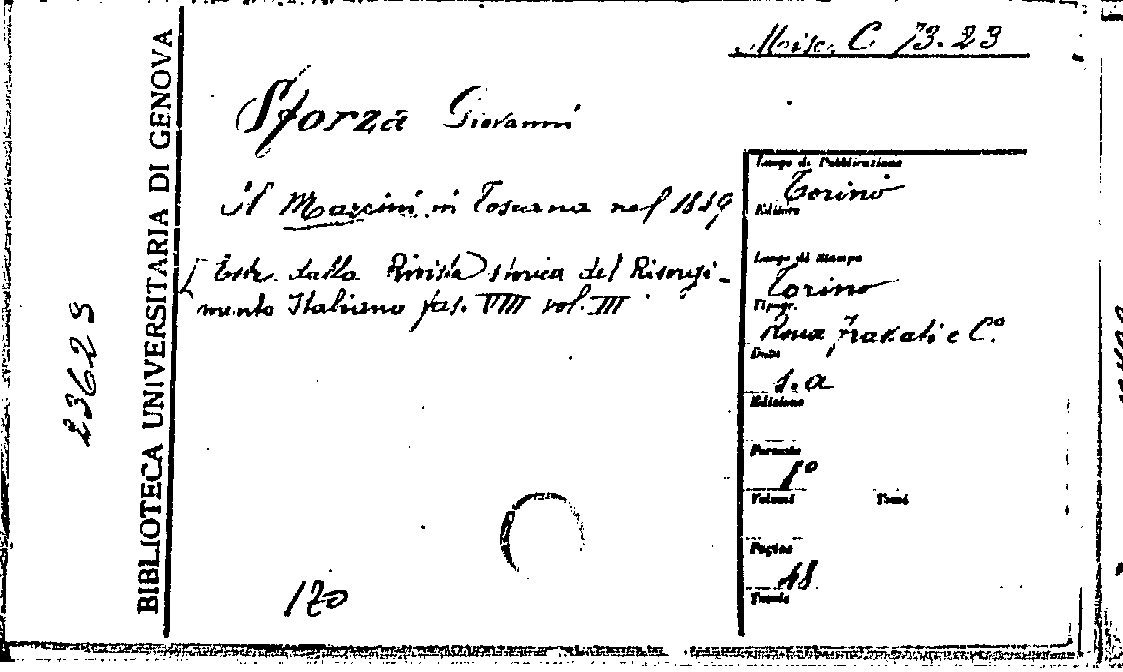 Misc. C 73.23
BIBLIOTECA UNIVERSITARIA DI GENOVA
23628
Sforza Giovanni
il Mazzini in Toscana nel 1849
[Estr. dalla Rivista storica del Risorgi-
mento Italiano fas. VIII vol. III
120
Luogo di Pubblicazione
Torino
Editore
Luogo di Stampa
Torino
Tipogr.
Roux Frassati e C.º
Data
s.a
Edizione
Formato
Volumi Tomi
Pagine
48
Tavole